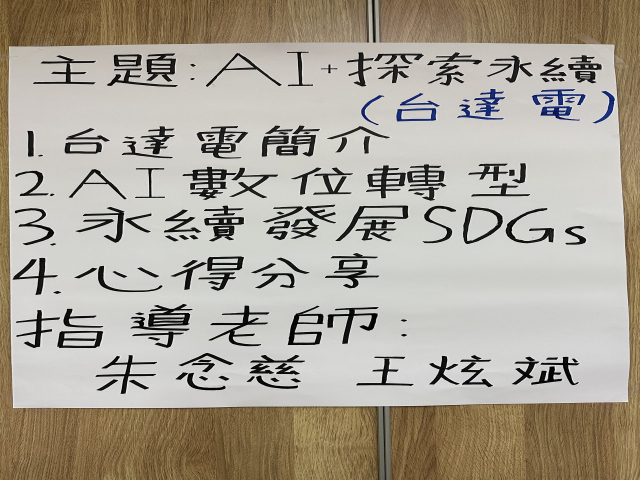 主題:AI+探索永續
(台達電)
1.台達電簡介
2.AI數位轉型
3.永續發展SDGs
4.心得分享
指導老師:
朱念慈 王炫斌